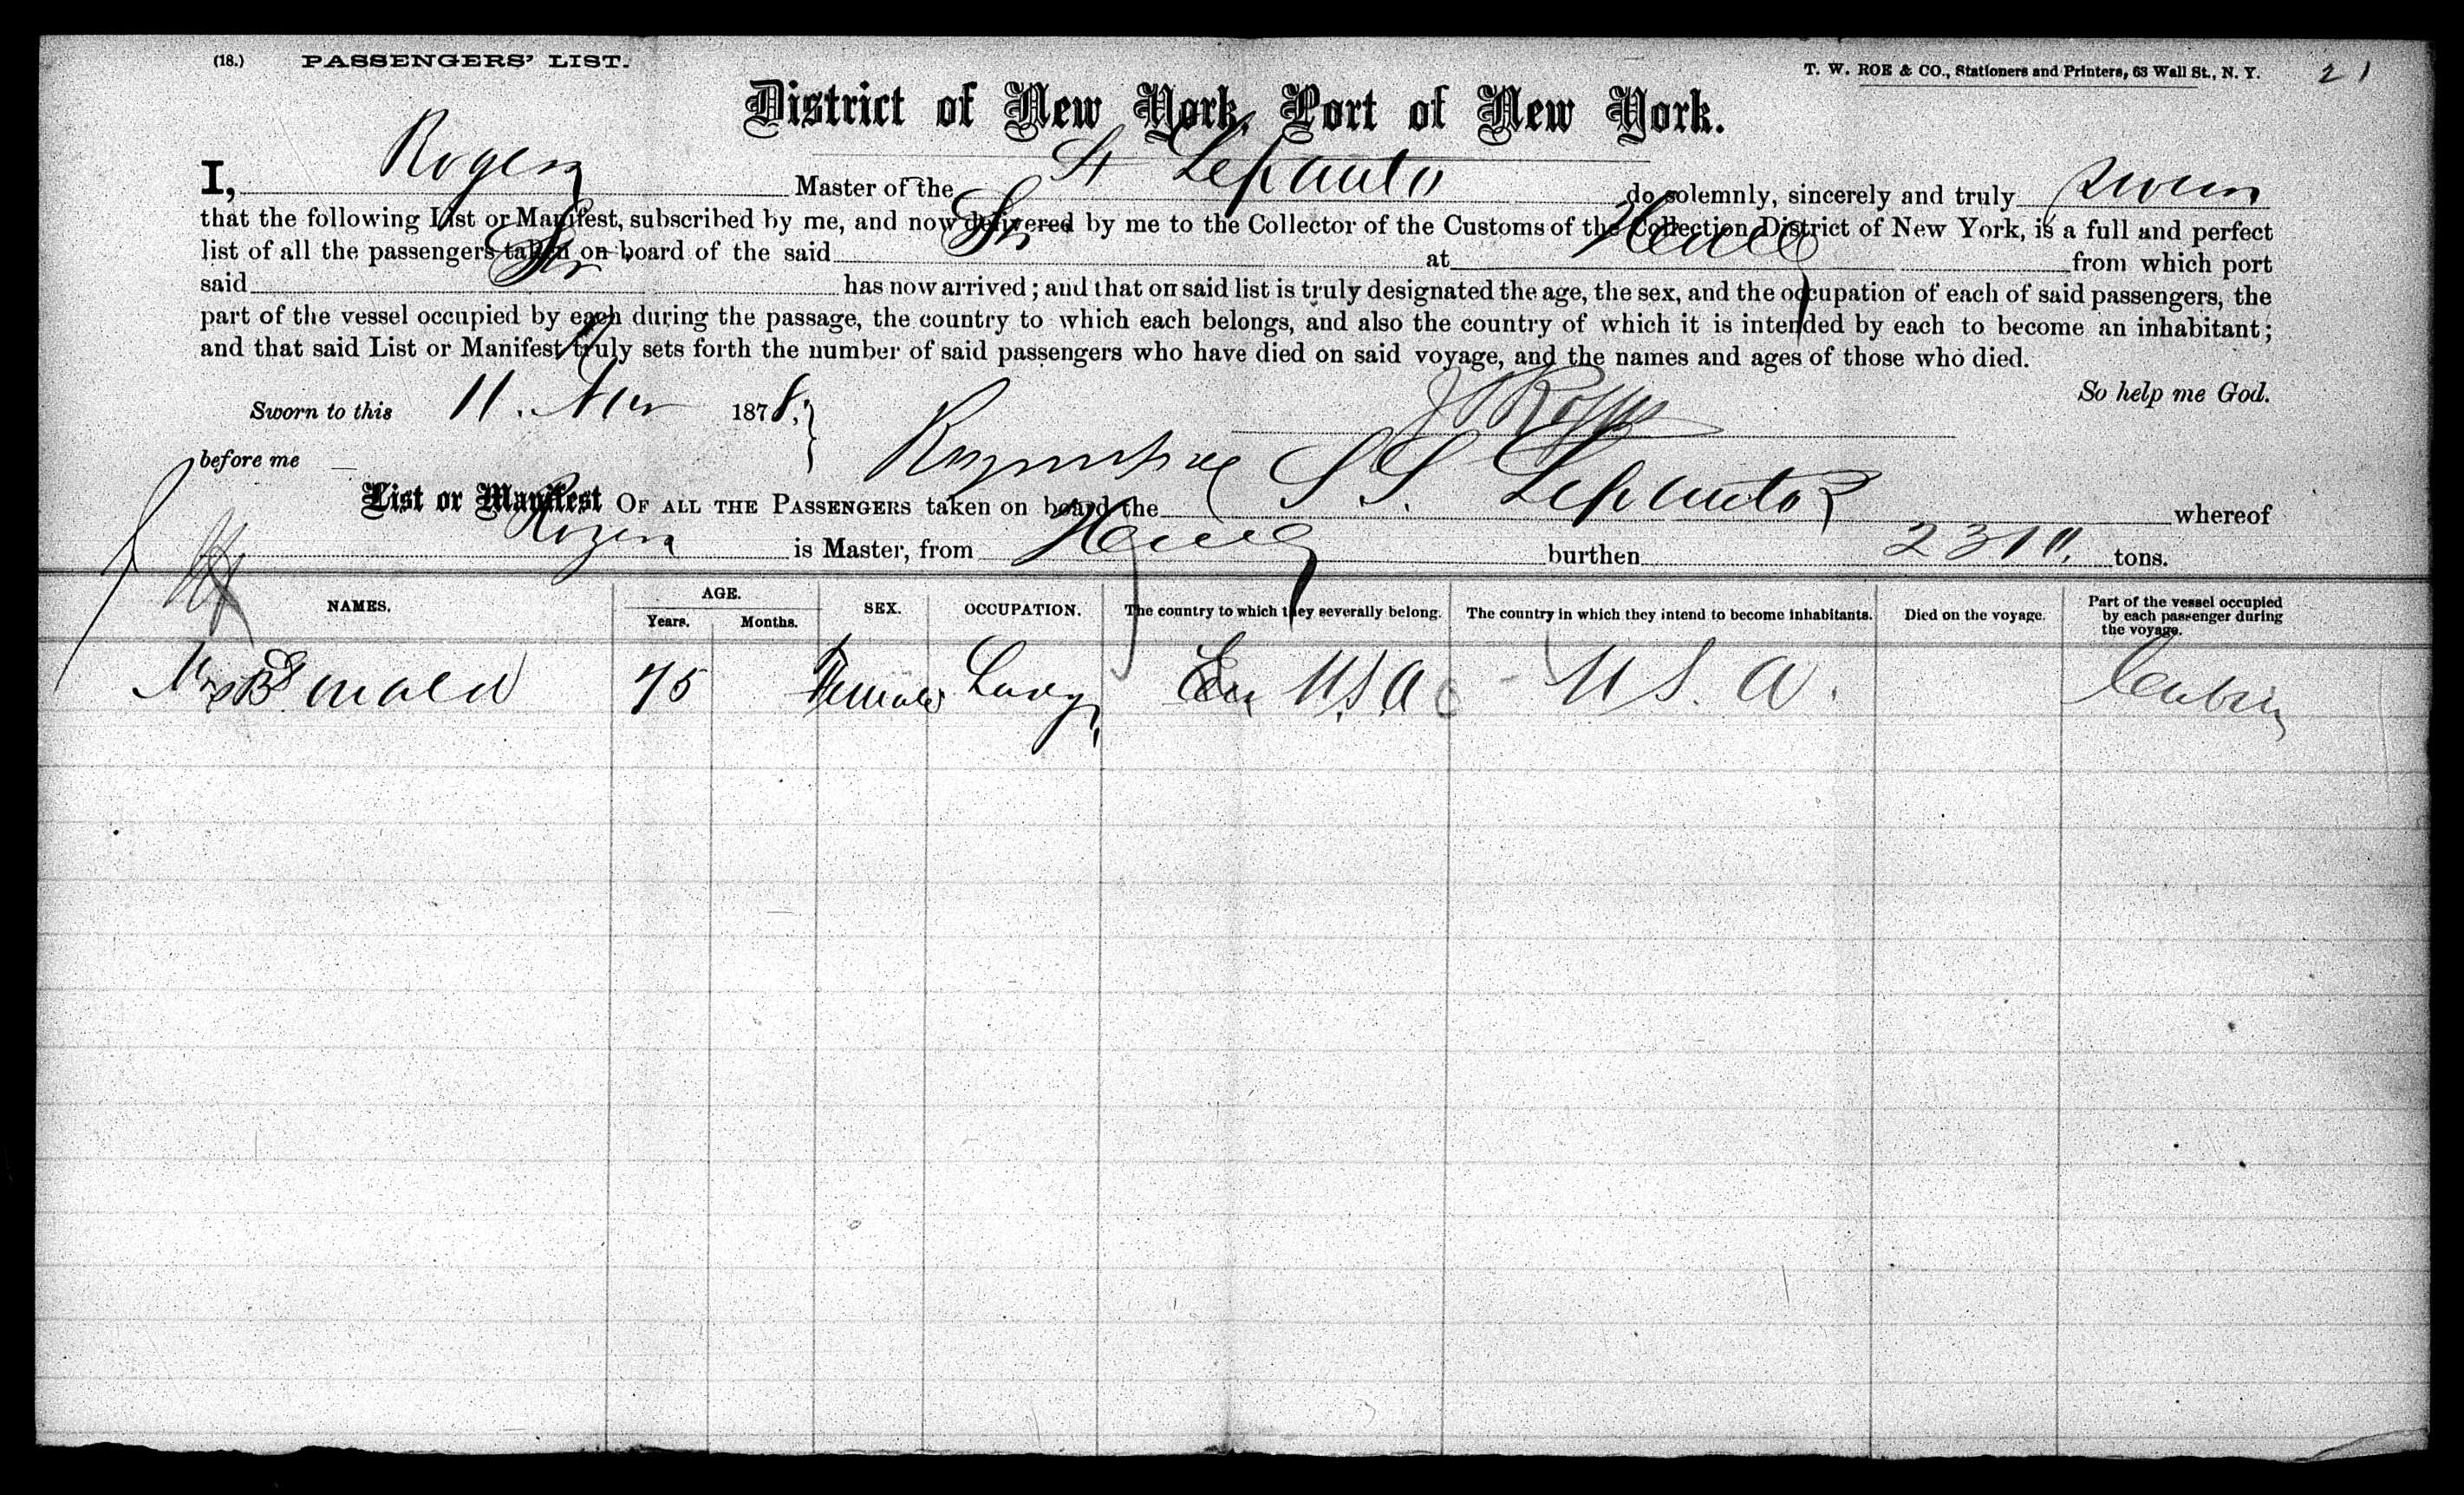 (18.) PASSENGERS' LIST.
T. W. ROE & CO., Stationers and Printers, 63 Wall St., N. Y. 21
District of New York, Port of New York.
I, Rogers Master of the St Lepanto do solemnly, sincerely and truly swear
that the following List or Manifest, subscribed by me, and now delivered by me to the Collector of the Customs of the Collection District of New York, is a full and perfect
list of all the passengers taken on board of the said Str at Hull from which port
said Str has now arrived; and that on said list is truly designated the age, the sex, and the occupation of each of said passengers, the
part of the vessel occupied by each during the passage, the country to which each belongs, and also the country of which it is intended by each to become an inhabitant;
and that said List or Manifest truly sets forth the number of said passengers who have died on said voyage, and the names and ages of those who died.
So help me God.
Sworn to this 11. Nov 1878,
before me
List or Manifest OF ALL THE PASSENGERS taken on board the S S. Lepanto whereof
Rogers is Master, from Hull burthen 2310 tons.
NAMES. AGE. Years. Months. SEX. OCCUPATION. The country to which they severally belong. The country in which they intend to become inhabitants. Died on the voyage. Part of the vessel occupied by each passenger during the voyage.
Mrs 75 Female Lady U.S.A U S. A. Cabin